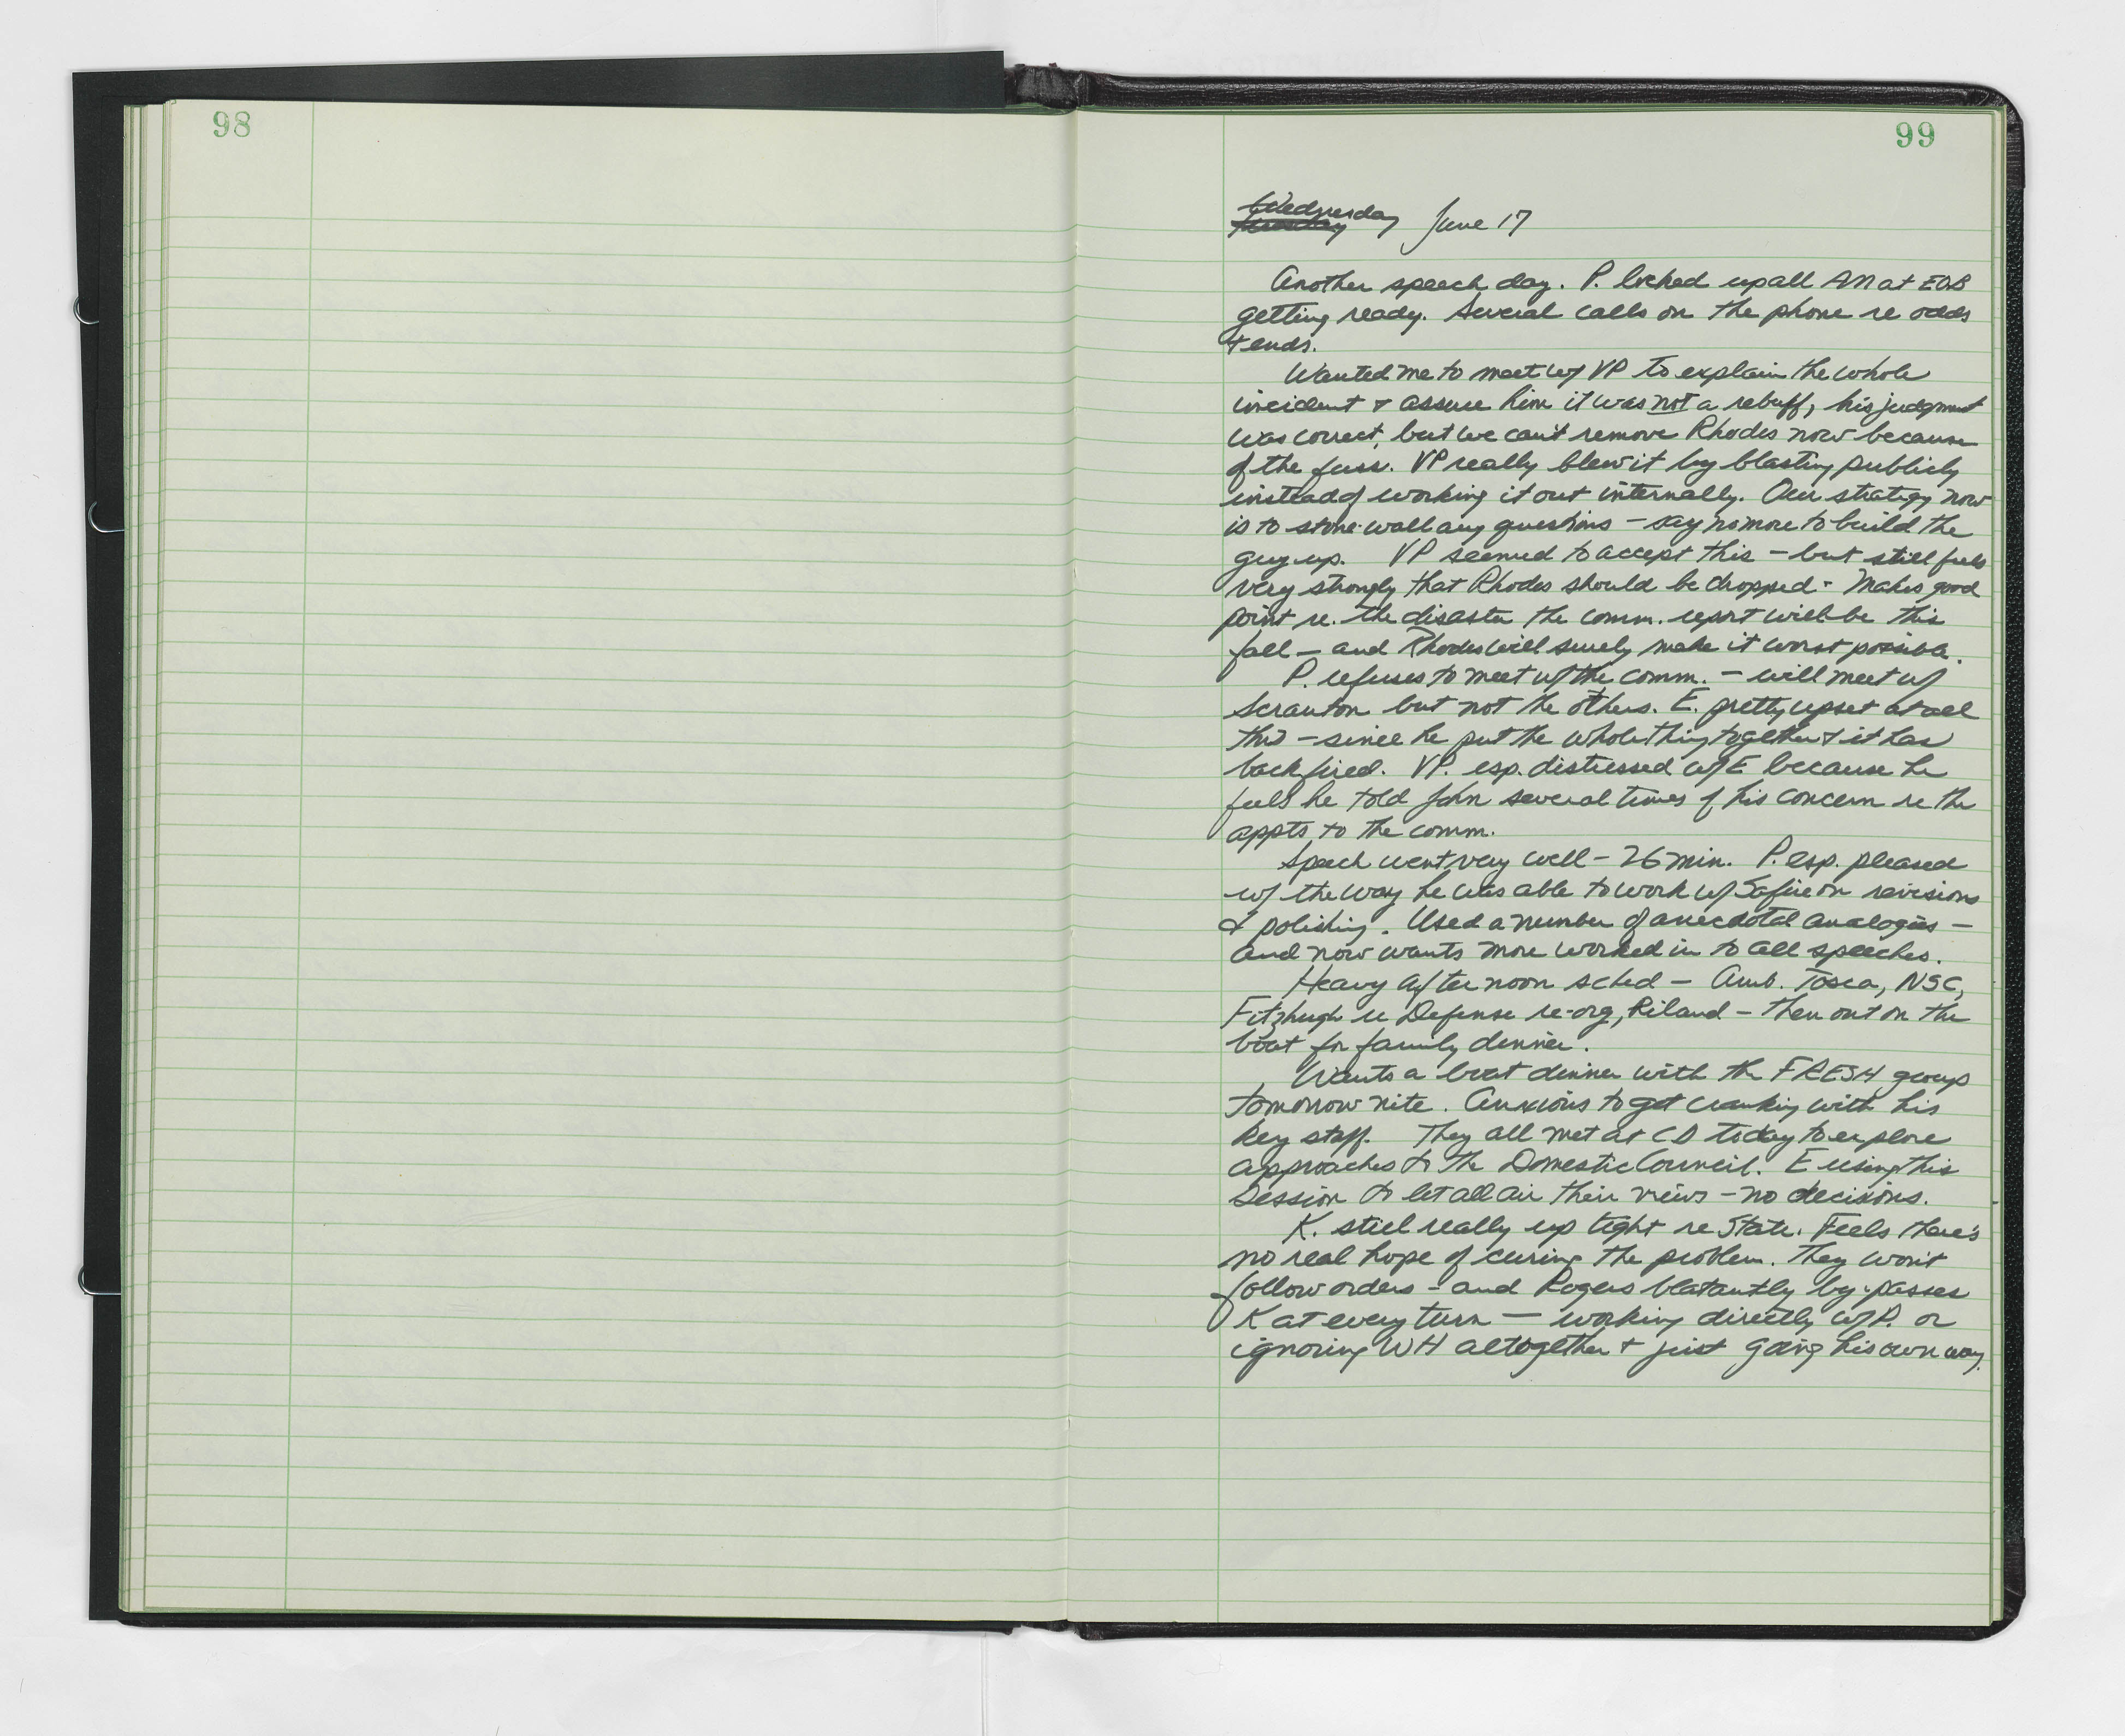 98
99
Wednesday
Tuesday June 17
Another speech day. P. locked up all AM at EOB
getting ready. Several calls on the phone re odds
+ ends.
Wanted me to meet w/ VP to explain the whole
incident + assure him it was not a rebuff, his judgment
was correct, but we can't remove Rhodes now because
of the fuss. VP really blew it by blasting publicly
instead of working it out internally. Our strategy now
is to stone-wall any questions - say no more to build the
guy up. VP seemed to accept this - but still feels
very strongly that Rhodes should be dropped - Makes good
point re. the disaster the comm. report will be this
fall - and Rhodes will surely make it worst possible.
P. refuses to meet w/ the comm. - will meet w/
Scranton but not the others. E. pretty upset at all
this - since he put the whole thing together & it has
backfired. VP. esp. distressed w/ E because he
feels he told John several times of his concern re the
appts to the comm.
Speech went very well - 26 min. P. esp. pleased
w/ the way he was able to work w/ Safire on revisions
& polishing. Used a number of anecdotal analogies -
and now wants more worked in to all speeches.
Heavy afternoon sched - Amb. Tasca, NSC,
Fitzhugh re Defense re-org, Riland - then out on the
boat for family dinner.
Wants a boat dinner with the FRESH group
tomorrow nite. Anxious to get cranking with his
key staff. They all met at CD today to explore
approaches to the Domestic Council. E using this
session to let all air their views - no decisions.
K. still really up tight re State. Feels there's
no real hope of curing the problem. They won't
follow orders - and Rogers blatantly by-passes
K at every turn - working directly w/ P. or
ignoring WH altogether + just going his own way.